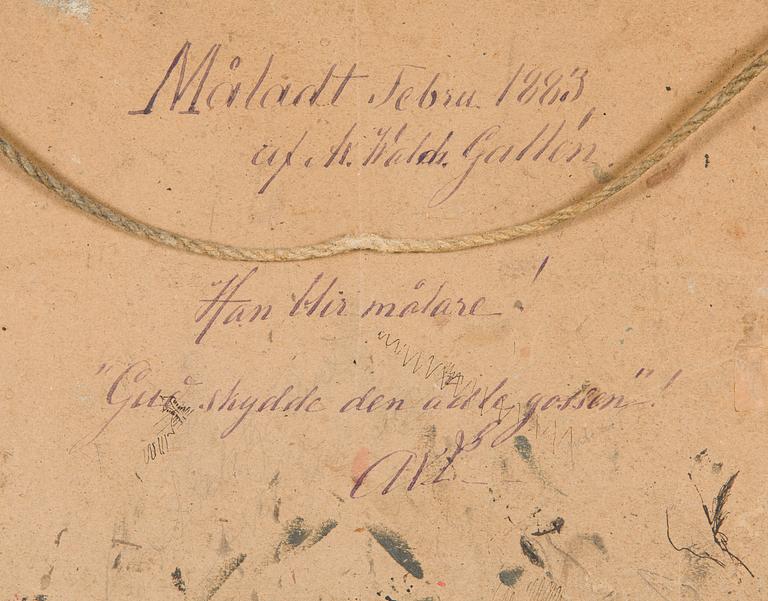 Måladt Febru. 1883,
af A. Wald. Gallén.
Han blir målare!
"Gud skydde den ädla gossen"!